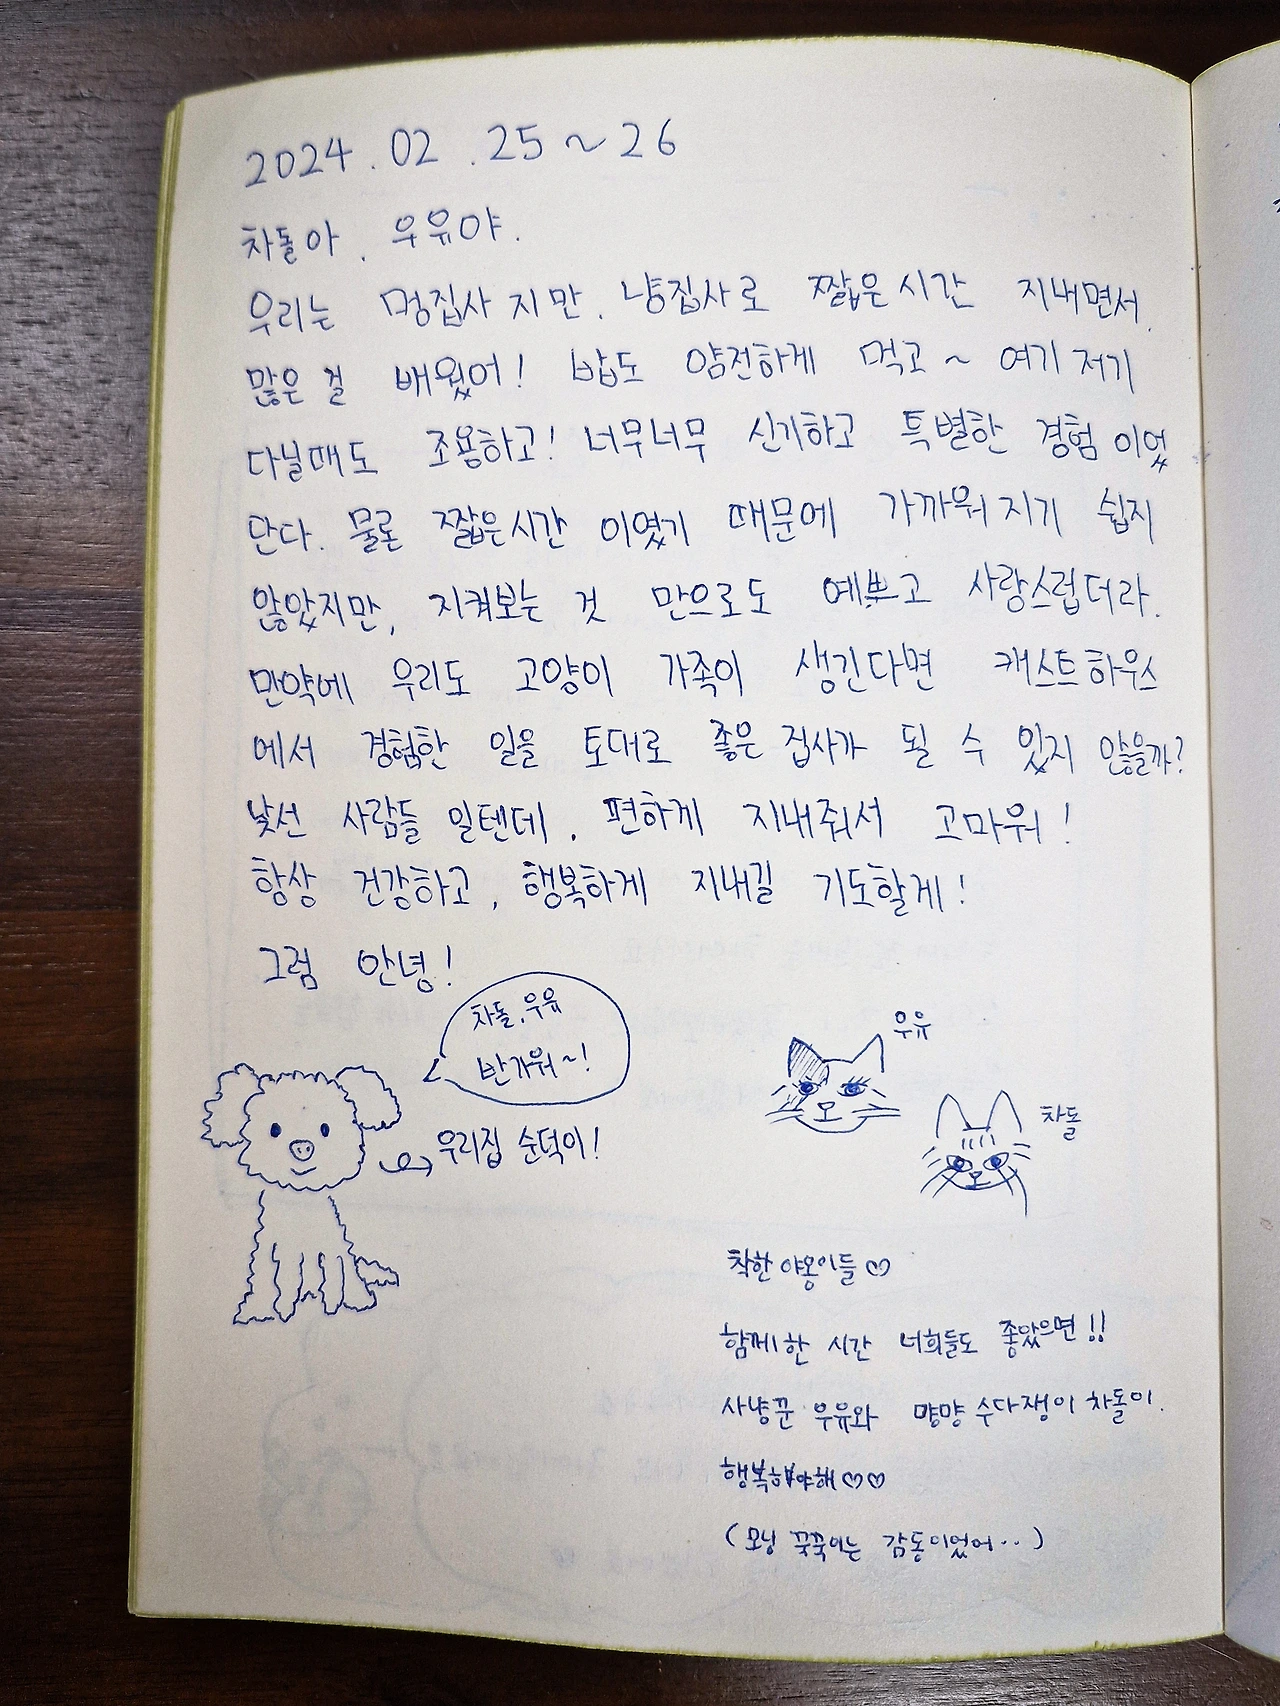 2024.02.25~26
차돌아. 우유야.
우리는 멍집사지만. 냥집사로 짧은시간 지내면서.
많은 걸 배웠어! 밥도 얌전하게 먹고~ 여기저기
다닐때도 조용하고! 너무너무 신기하고 특별한 경험이었
단다. 물론 짧은시간 이였기 때문에 가까워지기 쉽지
않았지만, 지켜보는 것 만으로도 예쁘고 사랑스럽더라.
만약에 우리도 고양이 가족이 생긴다면 캐스트하우스
에서 경험한 일을 토대로 좋은 집사가 될 수 있지 않을까?
낯선 사람들 일텐데. 편하게 지내줘서 고마워!
항상 건강하고, 행복하게 지내길 기도할게!
그럼 안녕!
차돌, 우유
반가워~!
우리집 순덕이!
우유
차돌
착한 야옹이들♡
함께한 시간 너희들도 좋았으면!!
사냥꾼 우유와 먕먕 수다쟁이 차돌이.
행복해야해♡♡
(모닝 꾹꾹이는 감동이었어..)